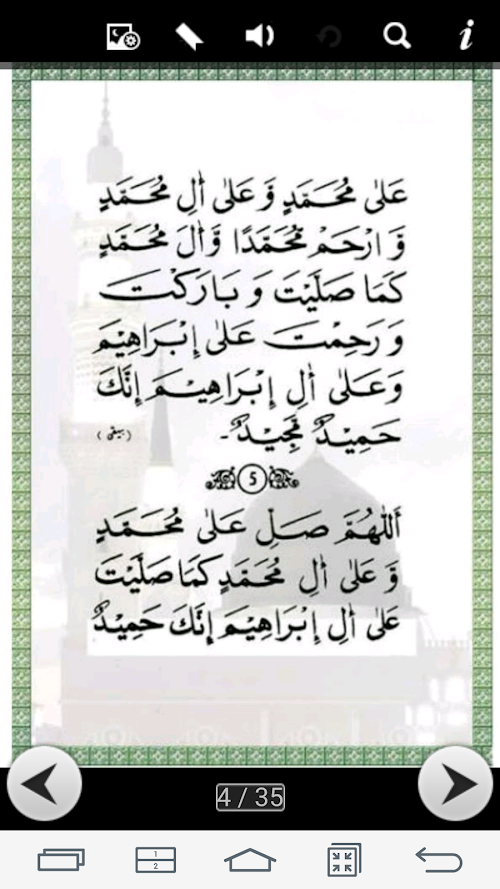 عَلٰى مُحَمَّدٍ وَّ عَلٰى اٰلِ مُحَمَّدٍ
وَّ ارْحَمْ مُحَمَّدًا وَّاٰلَ مُحَمَّدٍ
كَمَا صَلَّيْتَ وَ بَارَكْتَ
وَ رَحِمْتَ عَلٰى اِبْرَاهِيْمَ
وَعَلٰى اٰلِ اِبْرَاهِيْمَ اِنَّكَ
حَمِيْدٌ مَّجِيْدٌ۔ (بیہقی)
5
اَللّٰهُمَّ صَلِّ عَلٰى مُحَمَّدٍ
وَّ عَلٰى اٰلِ مُحَمَّدٍ كَمَا صَلَّيْتَ
عَلٰى اٰلِ اِبْرَاهِيْمَ اِنَّكَ حَمِيْدٌ
4 / 35